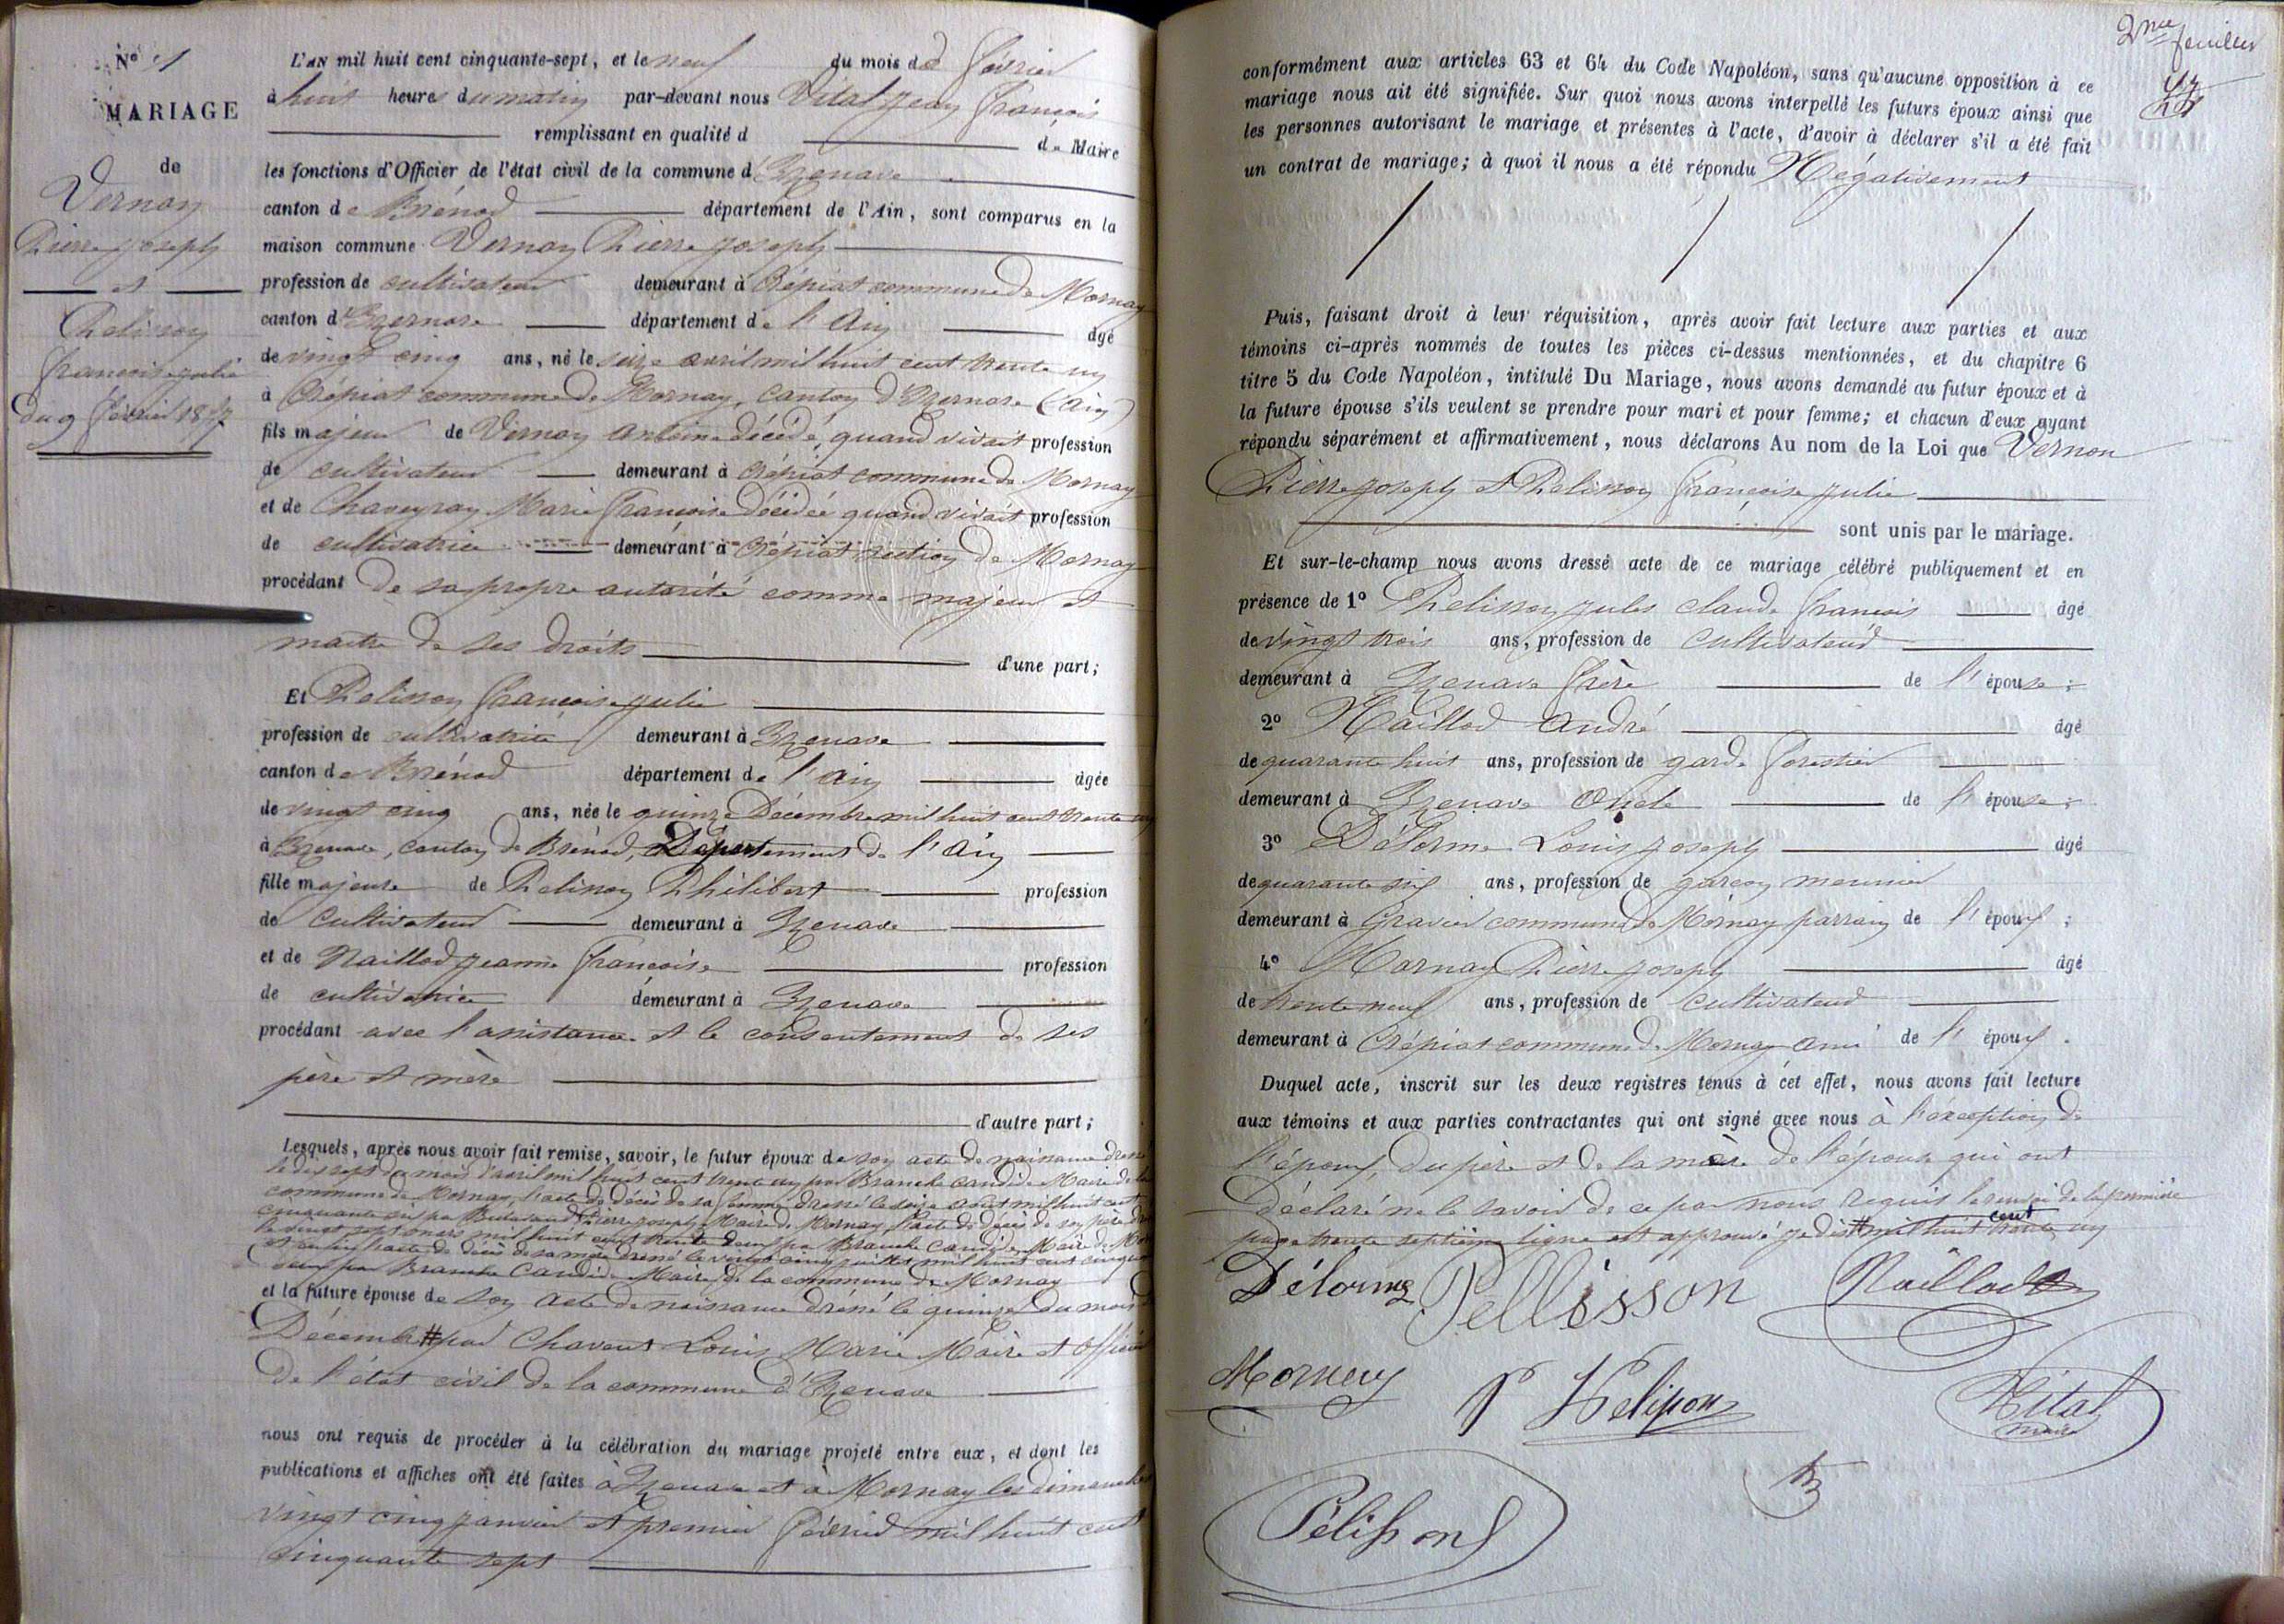 N° 1
MARIAGE
de
Vernay
Pierre Joseph
et
Pelisson
françoise julie
du 9 février 1857
L'AN mil huit cent cinquante-sept, et le neuf du mois de février
à huit heures du matin par-devant nous Vital Jean françois
remplissant en qualité d de Maire
les fonctions d'Officier de l'état civil de la commune d'Izenave
canton de Brénod département de l'Ain, sont comparus en la
maison commune Vernay Pierre Joseph
profession de cultivateur demeurant à Crépiat commune de Mornay
canton d'Izernore département de l'Ain âgé
de vingt cinq ans, né le seize avril mil huit cent trente un
à Crépiat commune de Mornay, canton d'Izernore (Ain)
fils majeur de Vernay Antoine décédé, quand vivait profession
de cultivateur demeurant à Crépiat commune de Mornay
et de Chaveyron Marie françoise décédée quand vivait profession
de cultivatrice demeurant à Crépiat section de Mornay
procédant de sa propre autorité comme majeur et
maitre de ses droits d'une part;
Et Pelisson françoise julie
profession de cultivatrice demeurant à Izenave
canton de Brénod département de l'Ain âgée
de vingt cinq ans, née le quinze Décembre mil huit cent trente un
à Izenave, canton de Brénod, Département de l'Ain
fille majeure de Pelisson Philibert profession
de cultivateur demeurant à Izenave
et de Naillod Jeanne françoise profession
de cultivatrice demeurant à Izenave
procédant avec l'assistance et le consentement de ses
père et mère
d'autre part;
Lesquels, après nous avoir fait remise, savoir, le futur époux de son acte de naissance dressé
le dix sept du mois d'avril mil huit cent trente un par Branche Candide Maire de la
commune de Mornay, l'acte de décès de sa femme dressé le seize août mil huit cent
cinquante six par Pierre joseph Maire de Mornay, l'acte de décès de son père
le vingt sept mars mil huit cent trente deux par Branche Candide Maire de
et enfin l'acte de décès de sa mère dressé le vingt cinq juillet mil huit cent cinquante
par Branche Candide Maire de la commune de Mornay
et la future épouse de son acte de naissance dressé le quinze du mois
Décembre # par Chavent Louis Marie Maire et Officier
de l'état civil de la commune d'Izenave
nous ont requis de procéder à la célébration du mariage projeté entre eux, et dont les
publications et affiches ont été faites à Izenave et à Mornay les dimanches
vingt cinq janvier et premier février mil huit cent
cinquante sept
2me feuillet
conformément aux articles 63 et 64 du Code Napoléon, sans qu'aucune opposition à ce
mariage nous ait été signifiée. Sur quoi nous avons interpellé les futurs époux ainsi que
les personnes autorisant le mariage et présentes à l'acte, d'avoir à déclarer s'il a été fait
un contrat de mariage; à quoi il nous a été répondu Négativement
Puis, faisant droit à leur réquisition, après avoir fait lecture aux parties et aux
témoins ci-après nommés de toutes les pièces ci-dessus mentionnées, et du chapitre 6
titre 5 du Code Napoléon, intitulé Du Mariage, nous avons demandé au futur époux et à
la future épouse s'ils veulent se prendre pour mari et pour femme; et chacun d'eux ayant
répondu séparément et affirmativement, nous déclarons Au nom de la Loi que Vernon
Pierre joseph et Pelisson françoise julie
sont unis par le mariage.
Et sur-le-champ nous avons dressé acte de ce mariage célébré publiquement et en
présence de 1° Pelisson jules claude françois âgé
de vingt trois ans, profession de cultivateur
demeurant à Izenave frère de l'épouse;
2° Naillod André âgé
de quarante huit ans, profession de garde forestier
demeurant à Izenave Oncle de l'épouse;
3° Délorme Louis joseph âgé
de quarante six ans, profession de garçon meunier
demeurant à Gravier commune de Mornay parrain de l'époux;
4° Mornay Pierre joseph âgé
de trente neuf ans, profession de cultivateur
demeurant à Crépiat commune de Mornay ami de l'époux.
Duquel acte, inscrit sur les deux registres tenus à cet effet, nous avons fait lecture
aux témoins et aux parties contractantes qui ont signé avec nous à l'exception de
l'époux, du père et de la mère de l'épouse qui ont
déclaré ne le savoir de ce par nous requis le renvoi de la premiere
page trente septième ligne est approuvé je dis # mil huit cent trente un
Délorme Pellisson Naillod
Mornay P Pelisson Vital
maire
Pélisson